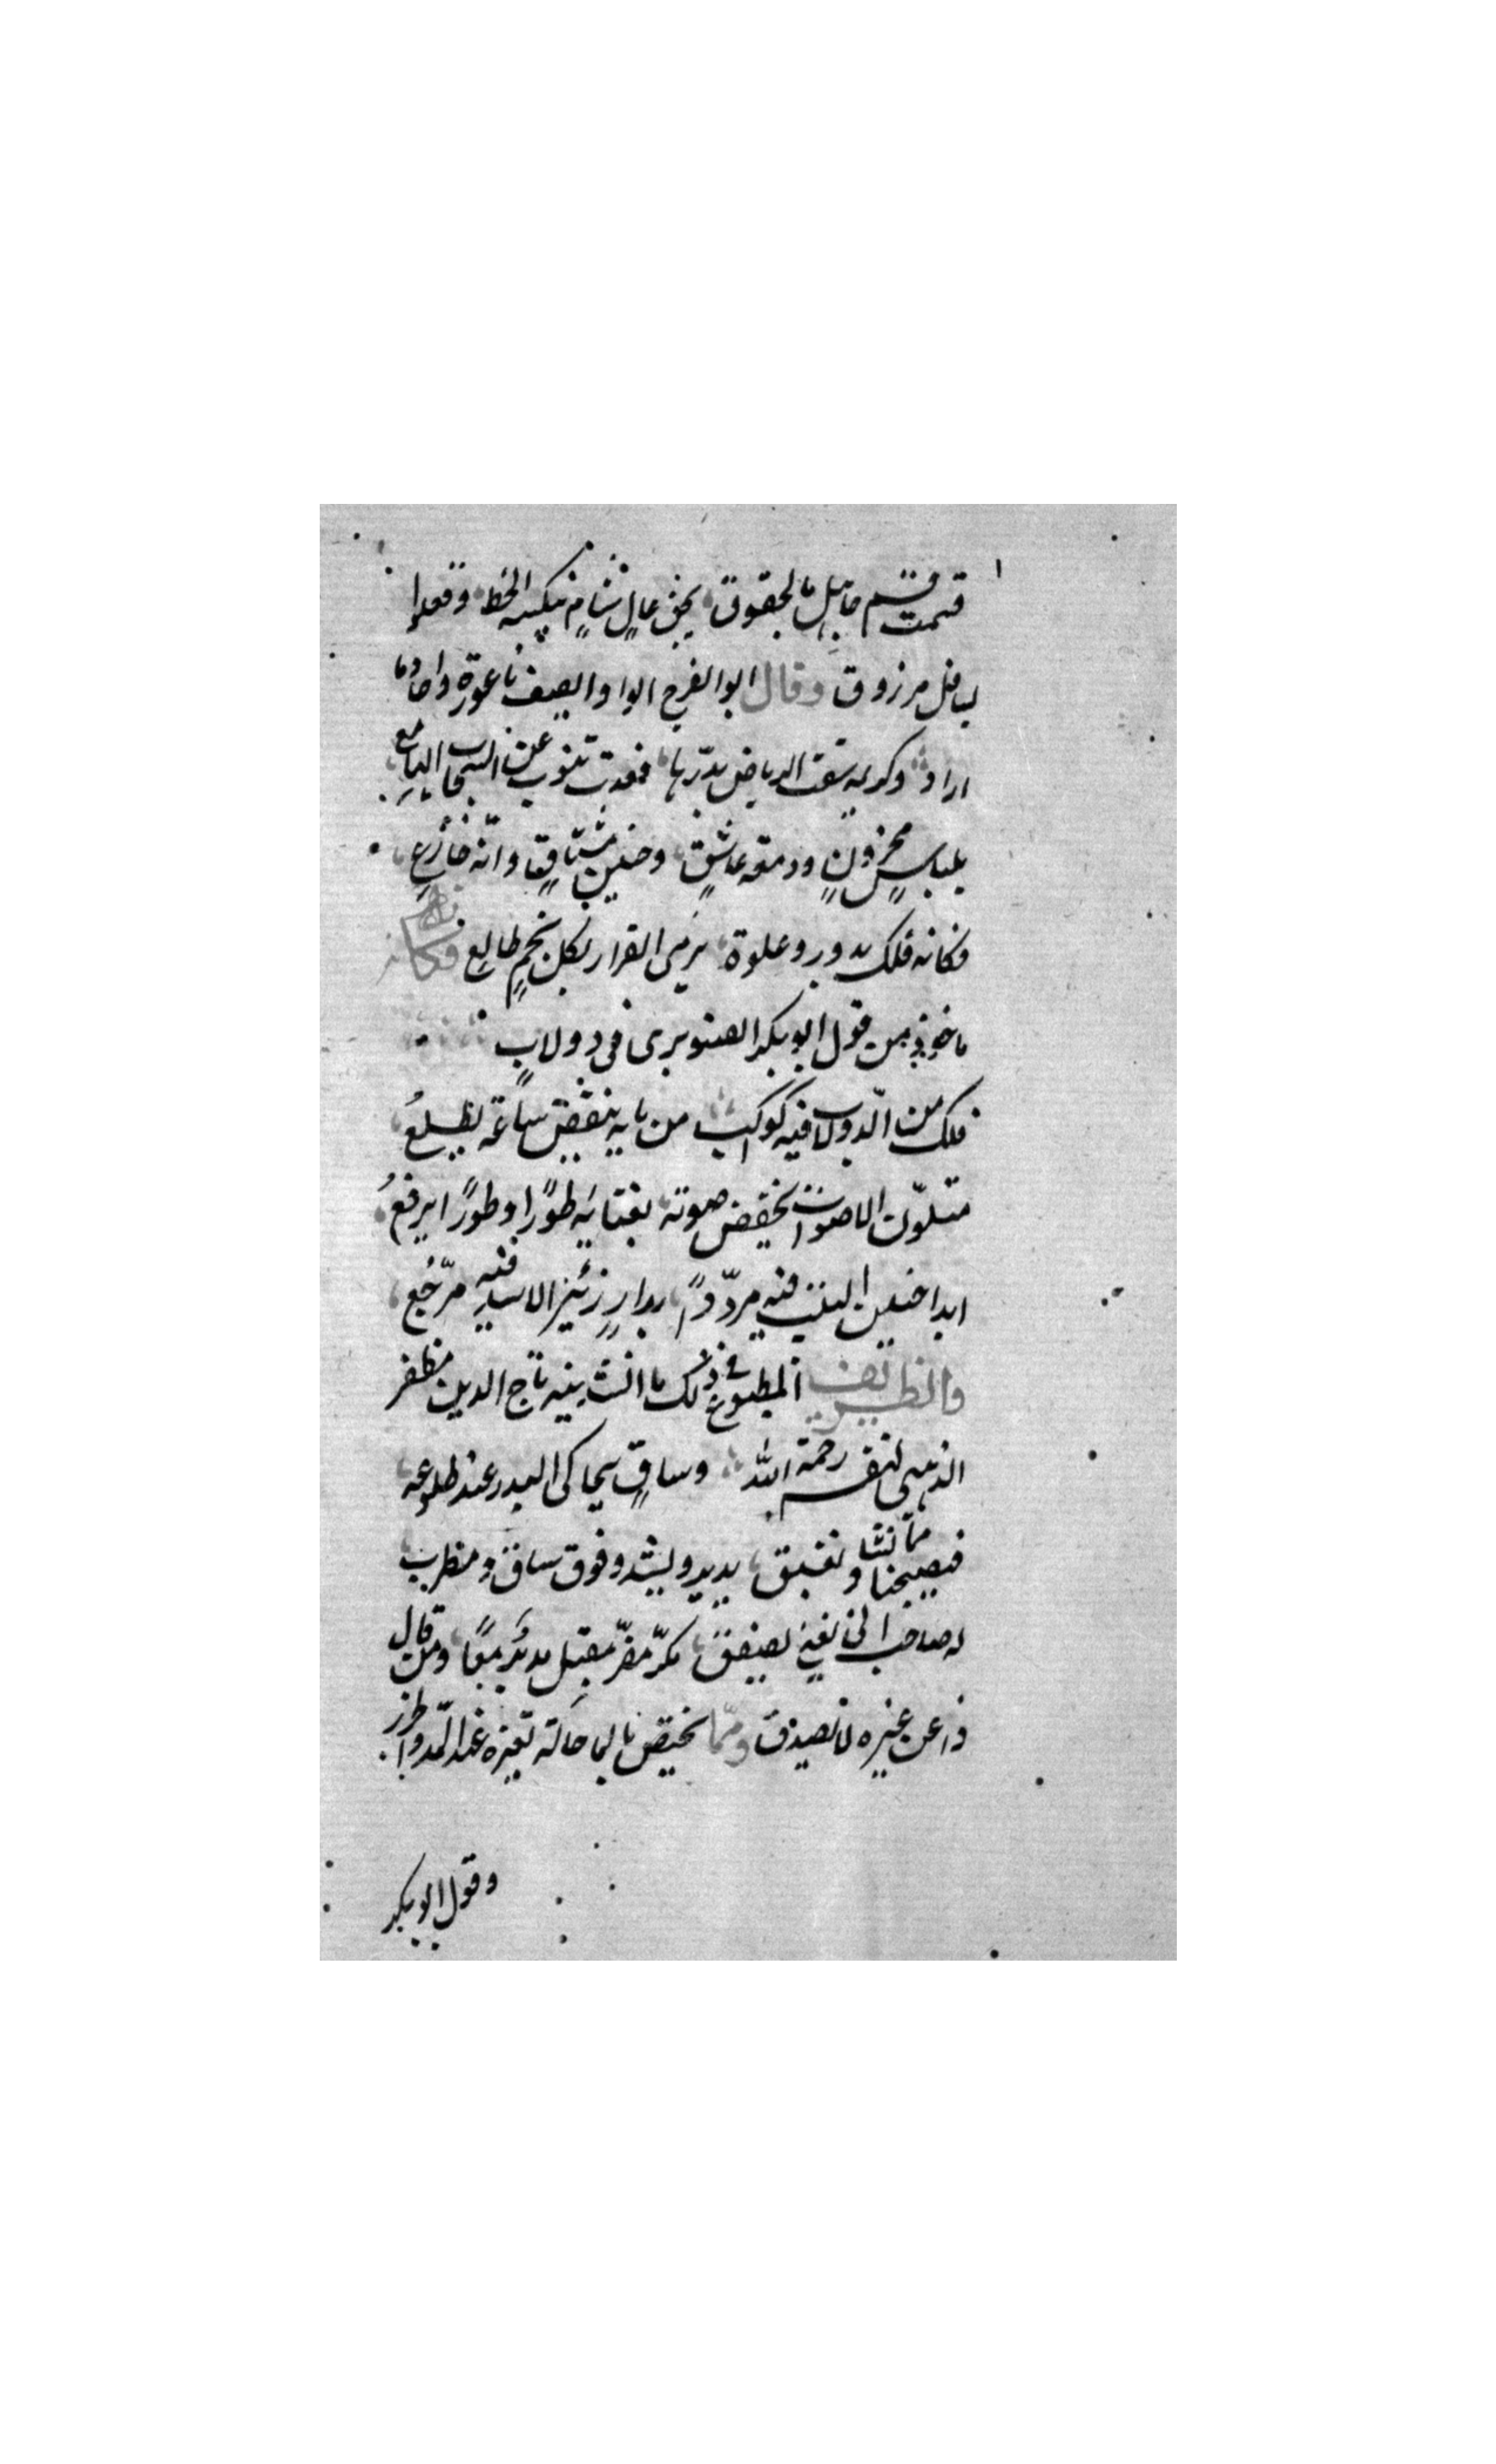 قسمت قسم جاهل بالحقوق يخفى عال شامخ ينكسه الخط وقعدا
لسافل مرزوق وقال ابو الفرج الواوا يصف ناعورة واجاد ما
اراد وكريمه سقت الرياض بدرّها فغدت تنوب عن السحاب الهامع
بلباس محزون ودمعه عاشق وحنين مشتاق وانّه جازع
فكانه فلك يدور وعلوه يرمى القرار بكل نجم طالع فكانه
ماخوذ من قول ابو بكر الصنوبرى فى دولاب
فلك من الدولاب فيه كواكب من مايه ينقض ساعة يطلع
متلوّن الاصوات يخفض صوته بغنايه طورًا وطورًا يرفع
ابدا حنين النيب فيه مردّدًا زئير الاسد فيه مرجّع
والظريف المطبوع فى ذلك ما انشدنيه تاج الدين مظفر
الذهبى لنفسه رحمه الله وساق يحاكى البدر عند طلوعه
فيصبحنا ممّا نشا ونغبق يدير ويشدو فوق ساق ومطرب
له صاحب الى يغنى يصفق مكرّ مفرّ مقبل مدبر معًا ومن قال
ذا عن غيره لا نصدق وممّا يختص بالمحاكة تعزه عند الدوا طرز
وقول ابو بكر